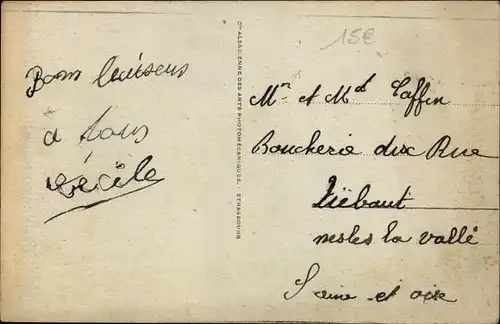 Bons baisers
a tous
Cécile
Cie ALSACIENNE DES ARTS PHOTOMÉCANIQUES. - STRASBOURG
15€
Mr et Md Taffin
Boucherie dix Rue
Thiébaut
nesles la vallé
Seine et oise